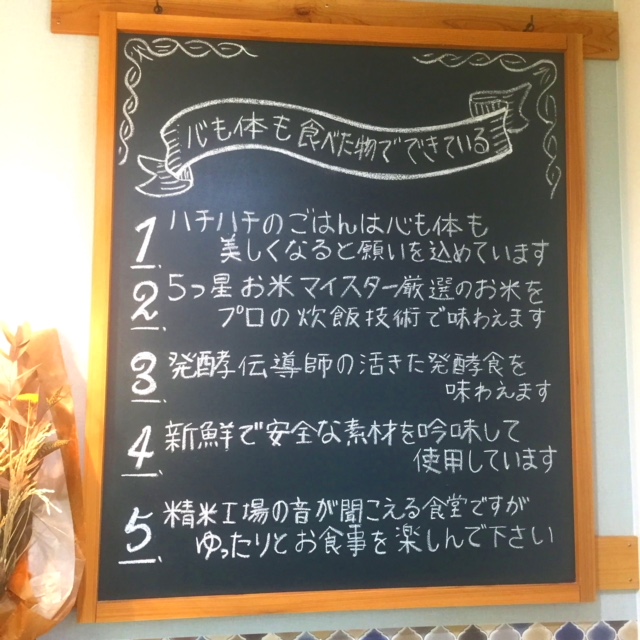 心も体も食べた物でできている
1、ハチハチのごはんは心も体も
美しくなると願いを込めています
2、5つ星お米マイスター厳選のお米を
プロの炊飯技術で味わえます
3、発酵伝導師の活きた発酵食を
味わえます
4、新鮮で安全な素材を吟味して
使用しています
5、精米工場の音が聞こえる食堂ですが
ゆったりとお食事を楽しんで下さい